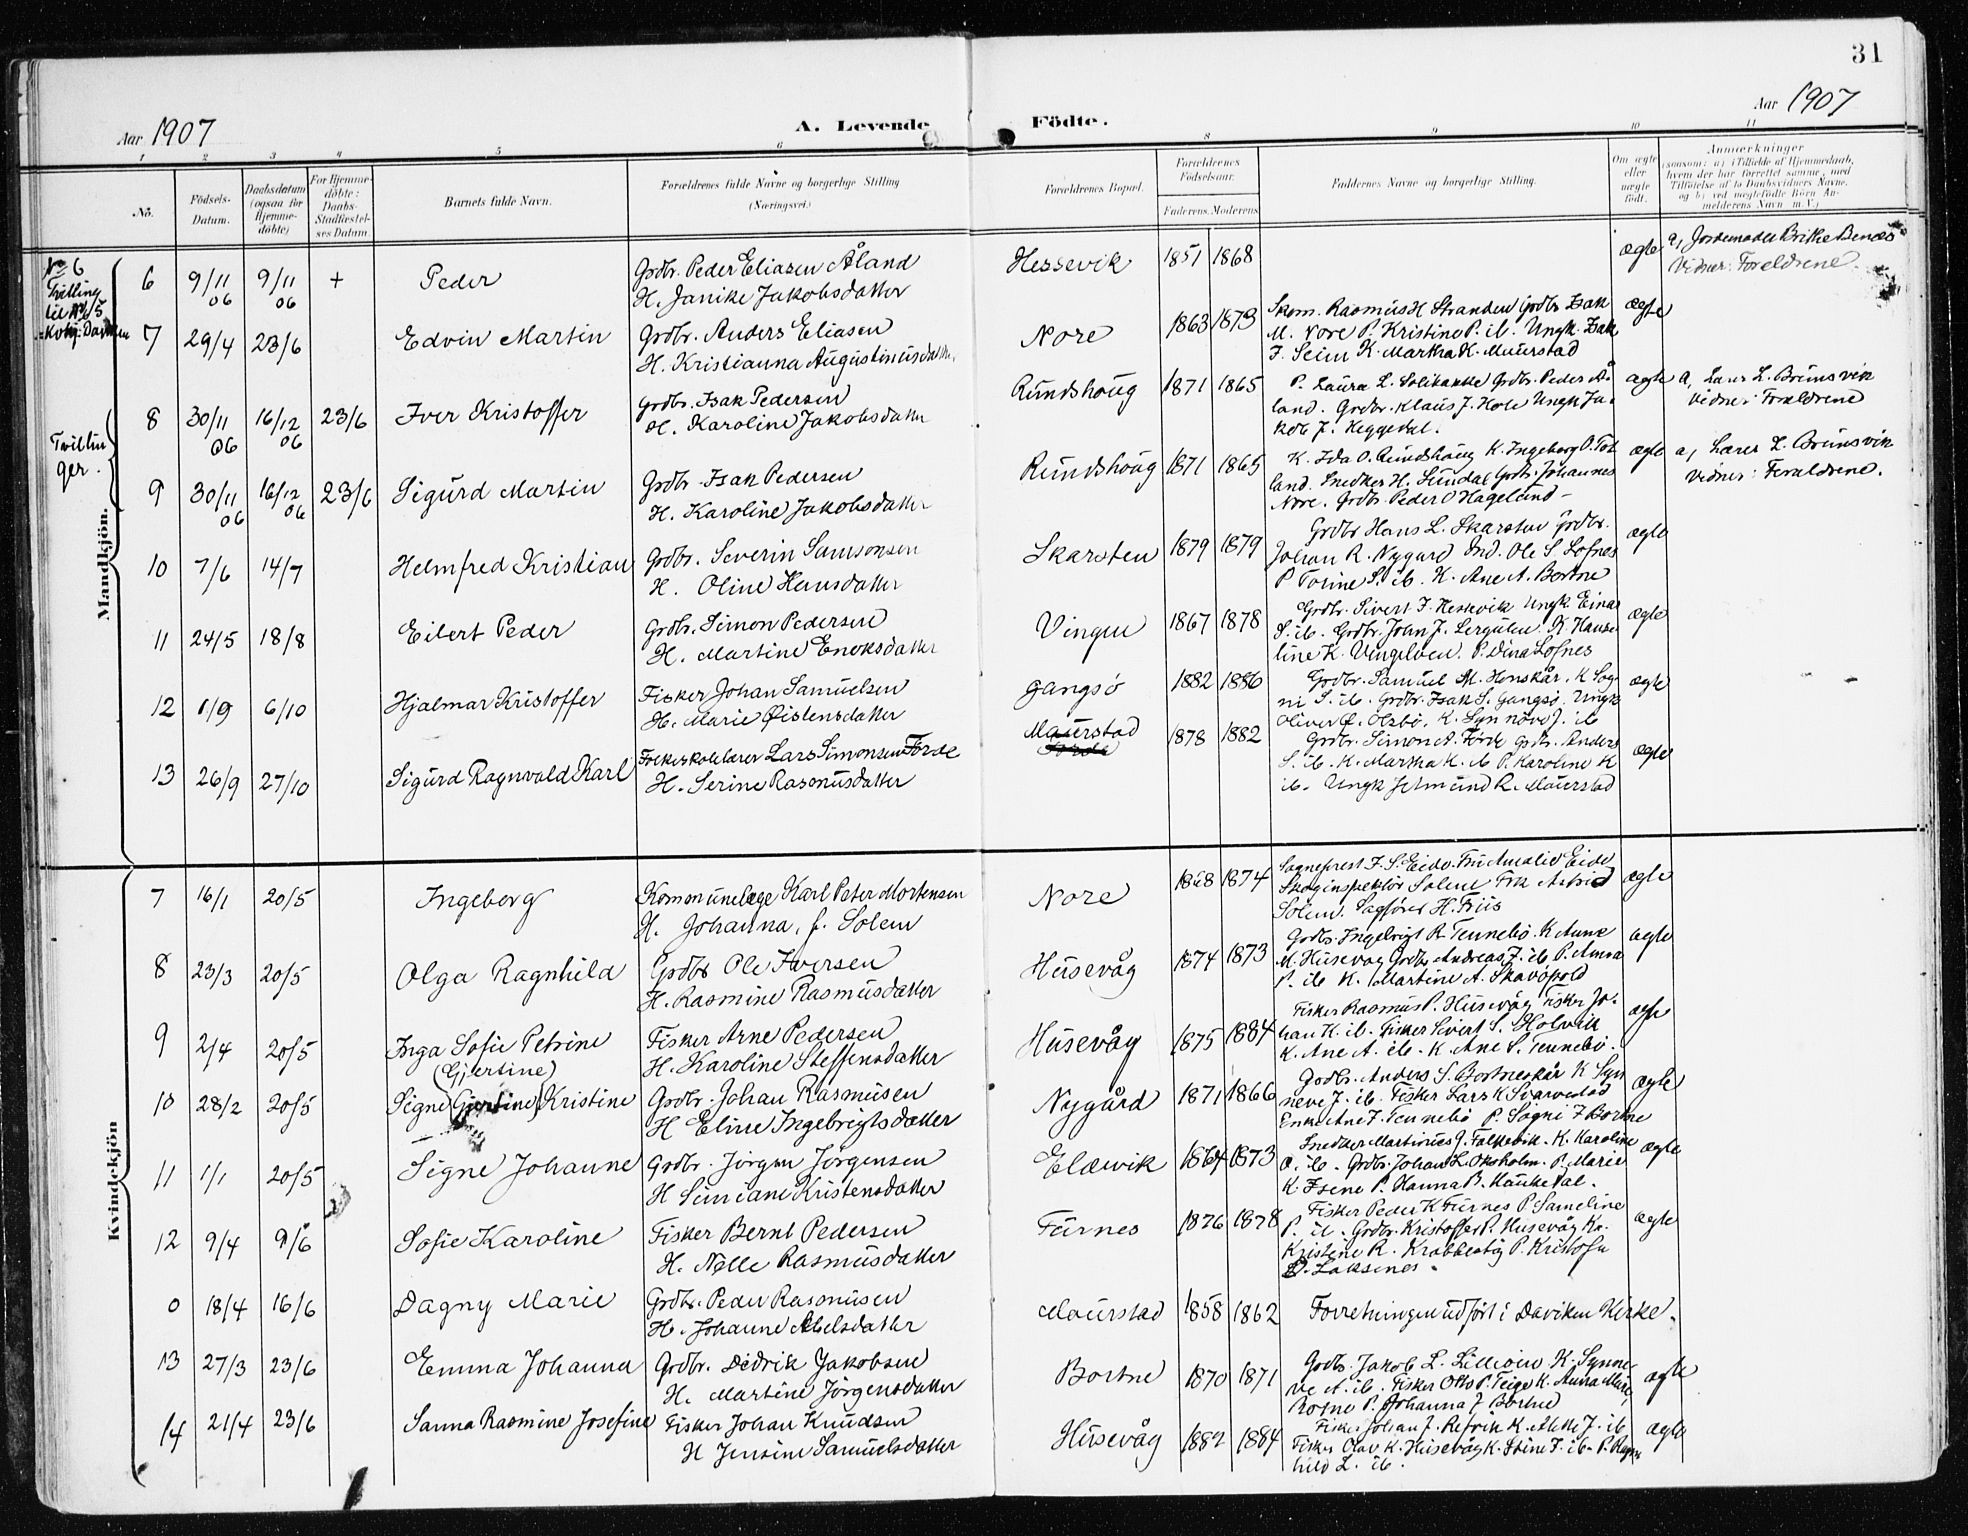 31
Aar 1907
A. Levende Födte.
Aar 1907
1 2 3 4 5 6 8 9 10 11
No.
Födsels-Datum.
Daabsdatum (ogsaa for Hjemme-döbte)
For Hjemme-döbte: Daabs-Stadfæstel-ses Datum
Barnets fulde Navn.
Forældrenes fulde Navne og borgerlige Stilling
(Næringsvei.)
Forældrenes Bopæl.
Forældrenes Födselsaar.
Faderens. Moderens
Faddernes Navne og borgerlige Stilling.
Om ægte eller uægte födt.
Anmærkninger
(saasom: a) i Tilfælde af Hjemmedaab, hvem der har forrettet samme, med Tilföielse af to Daabsvidners Navne, og b) ved uegtefödte Börn An-melderens Navn m. V.)
Mandkjön.
No 6
Tvilling
til No 5
Kvkj. Daviken
6 9/11 06 9/11 06 + Peder
Grdbr. Peder Eliasen Åland
H. Janike Jakobsdatter
Hessevik 1851 1868 ægte
a, Jordemoder Brithe
Vidner: Foreldrene.
7 29/4 23/6 Edvin Martin
Grdbr. Anders Eliasen
H. Kristianna Augustinusdatter
Nore 1863 1873
Skom. Rasmus H Stranden Grdbr. Isak
M. Nore P. Kristine P. ib. Ungk. Isak
J. Seim K. Martha K. Maurstad
ægte
Tvillin
ger.
8 30/11 06 16/12 06 23/6 Iver Kristoffer
Grdbr. Isak Pedersen
H. Karoline Jakobsdatter
Rundshoug 1871 1865
P. Laura L. Solibakke Grdbr. Peder Å
land. Grdbr. Klaus J. Hole Ungk Ja-
kob J. Heggedal.
ægte
a, Lærer L. Brunsvik
Vidner: Forældrene
9 30/11 06 16/12 06 23/6 Sigurd Martin
Grdbr Isak Pedersen
H. Karoline Jakobsdatter
Rundshoug 1871 1865
K. Ida O. Rundshoug K. Ingeborg P. Tot
land. Snedker H. Sundal Grdb. Johannes
Nore. Grdbr. Peder O Hageland -
ægte
a, Lærer L. Brunsvik
Vidner: Foreldrene.
10 7/6 14/7 Helmfred Kristian
Grdbr. Severin Samsonsen
H. Oline Hansdatter
Skarsten 1879 1879
Grdbr Hans L. Skarsten Grdbr.
Johan R. Nygard Ind. Ole S. Lofnes
P Torine S. ib. K. Ane A. Bortne
ægte
11 24/5 18/8 Eilert Peder
Grdbr. Simon Pedersen
H. Martine Enoksdatter
Vingen 1867 1878
Grdbr. Sivert J. Hessevik Ungk. Einar
S. ib. Grdbr. John J. K Hanse
line K. Vingelven. P. Dina Lofnes
ægte
12 1/9 6/10 Hjalmar Kristoffer
Fisker Johan Samuelsen
H. Marie Øistensdatter
Gangsø 1882 1886
Grdbr. Samuel M. Henskår. K Sog
ni S. ib. Grdbr. Isak S. Gangsø. Ungk
Oliver Ø. K. Synnøve J. ib
ægte
13 26/9 27/10 Sigurd Ragnvald Karl
Folkeskolelærer Lars Simonsen Förde
H. Serine Rasmusdatter
Maurstad
Förde
1878 1882
Grdbr. Simon A. Förde Grdbr. Anders
S. ib. K. Martha K. ib P. Karoline K
ib. Ungk Jetmund R. Maurstad
ægte
Kvindekjön
7 16/1 20/5 Ingeborg
Kommunelæge Karl Peter Mortensen
H. Johanna, f. Solem
Nore 1868 1874
Sogneprest J. S. Eide. Fru Amalie Eide
Skoginspektör Solem Frk Astrid
Solem. Sagförer H. Friis
ægte
8 23/3 20/5 Olga Ragnhild
Grdbr Ole Iversen
H. Rasmine Rasmusdatter
Husevåg 1874 1873
Grdbr. Ingebrigt R. Tennebö. K Anne
M. Husevåg Grdbr Andreas J. ib P. Anna
P. ib K. Martine A. Skavöpold
ægte
9 2/4 20/5 Inga Sofie Petrine
Fisker Arne Pedersen
H. Karoline Steffensdatter
Husevåg 1875 1884
Fisker Rasmus P. Husevåg Fisker Jo-
han K. ib. Fisker Sivert S. Holvik
K. Ane A. ib. K. Ane S. Tennebö.
ægte
(Gjertine)
10 28/2 20/5 Signe (Gjertine) Kristine
Grdbr. Johan Rasmusen
H Eline Ingebrigtsdatter
Nygård 1871 1866
Grdbr. Anders S. Bortneskår K Syn
neve J. ib. Fisker Lars K Svarvestad
Enke Ane J. Tennebö P. Sogni J Bortne
ægte
11 1/1 20/5 Signe Johanne
Grdbr. Jörgen Jörgensen
H Simiane Kristensdatter
Eldevik 1864 1873
Snedker Martinus J. Falkevik. K. Karoline
O. ib. Grdbr. Johan L. Oksholm. P. Marie
K. Isene P. Hanna B. Haukedal.
ægte
12 9/4 9/6 Sofie Karoline
Fisker Bernt Pedersen
H. Nelle Rasmusdatter
Furnes 1876 1878
Fisker Peder K Furnes P. Sameline
P. ib. Grdbr. Kristoffer P. Husevåg K.
Kristine R. Krabbestig P. Kristofa
D. Laksenes.
ægte
0 18/4 16/6 Dagny Marie
Grdbr. Peder Rasmusen
H. Johanne Abelsdatter
Maurstad 1858 1862
Forretningen udfört i Daviken Kirke.
13 27/3 23/6 Emma Johanna
Grdbr. Didrik Jakobsen
H. Martine Jörgensdatter
Bortne 1870 1871
Grdbr. Jakob L. Lillöien K. Synne-
ve A. ib. Fisker Otto P. Teige K. Anna Marie
P. Johanna J Bortne
ægte
14 21/4 23/6 Sanna Rasmine Josefine
Fisker Johan Knudsen
H Jensine Samuelsdatter
Husevåg 1882 1884
Fisker Johan J. Refvik K. Mette J. ib
Fisker Olav K. Husevåg K. Stine J. ib. P. Ragn
hild L. ib.
ægte